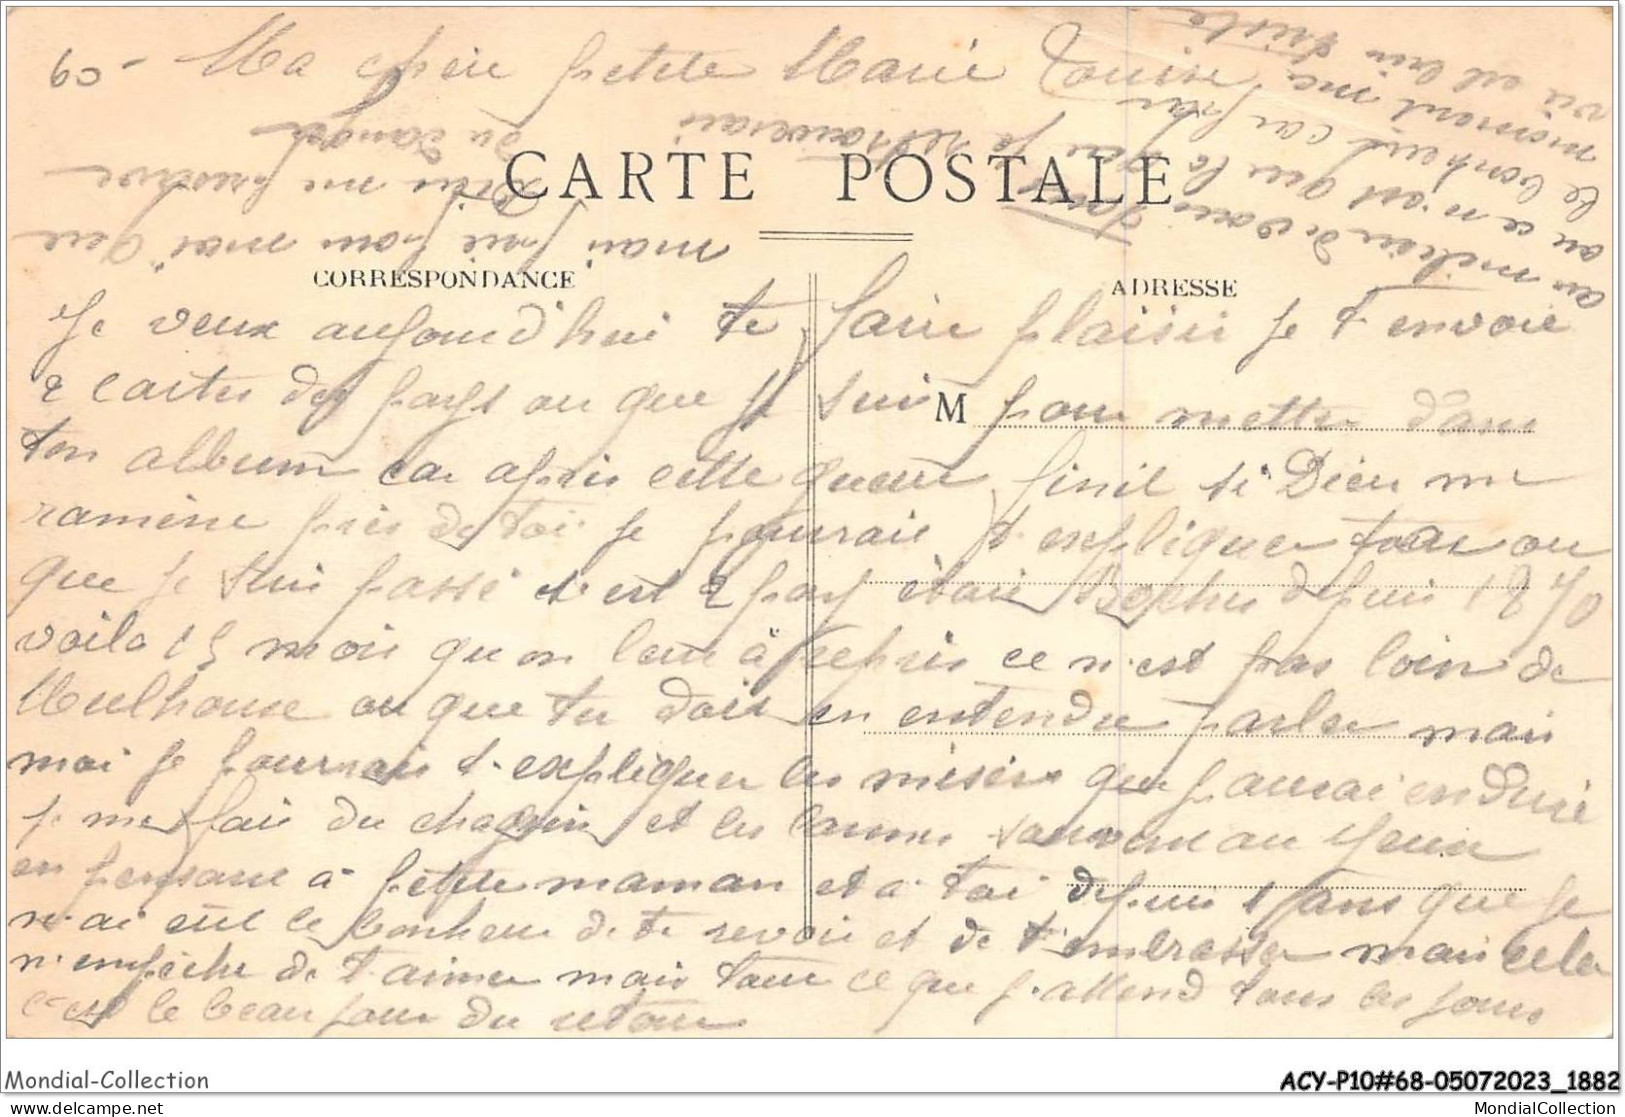 60 - Ma chère petite Marie Louise
CARTE POSTALE
CORRESPONDANCE
ADRESSE
M
Je veux aujourd'hui te faire plaisir je t'envoie
2 cartes des pays ou que je suis pour mettre dans
ton album car apris cette guerre finit si Dieu me
ramène près de toi je pourrais t'expliquer tous ou
que je suis passé c'est 2 pays étais Boches depuis 1870
voila 15 mois qu'on leur à repris ce n'est pas loin de
Mulhouse ou que tu dois en entendre parler mais
moi je pourrais t'expliquer les misères que j'aurai enduré
je me fais du chagrin et les larmes au yeux
en pensant à petite maman et a toi depuis 1 ans que je
n'ai eût le bonheur de te revoir et de t'embrasser mais cela
n'empêche de t'aimer mais tout ce que j'attend tous les jours
c'est le beau jour du retour
mais prie pour moi que
Dieu me preserve
du danger
je retrouverais
le bonheur car pour
moment ma
vie est bien triste
au milieu de vous
Mondial-Collection
ACY-P10#68-05072023_1882
MondialCollection